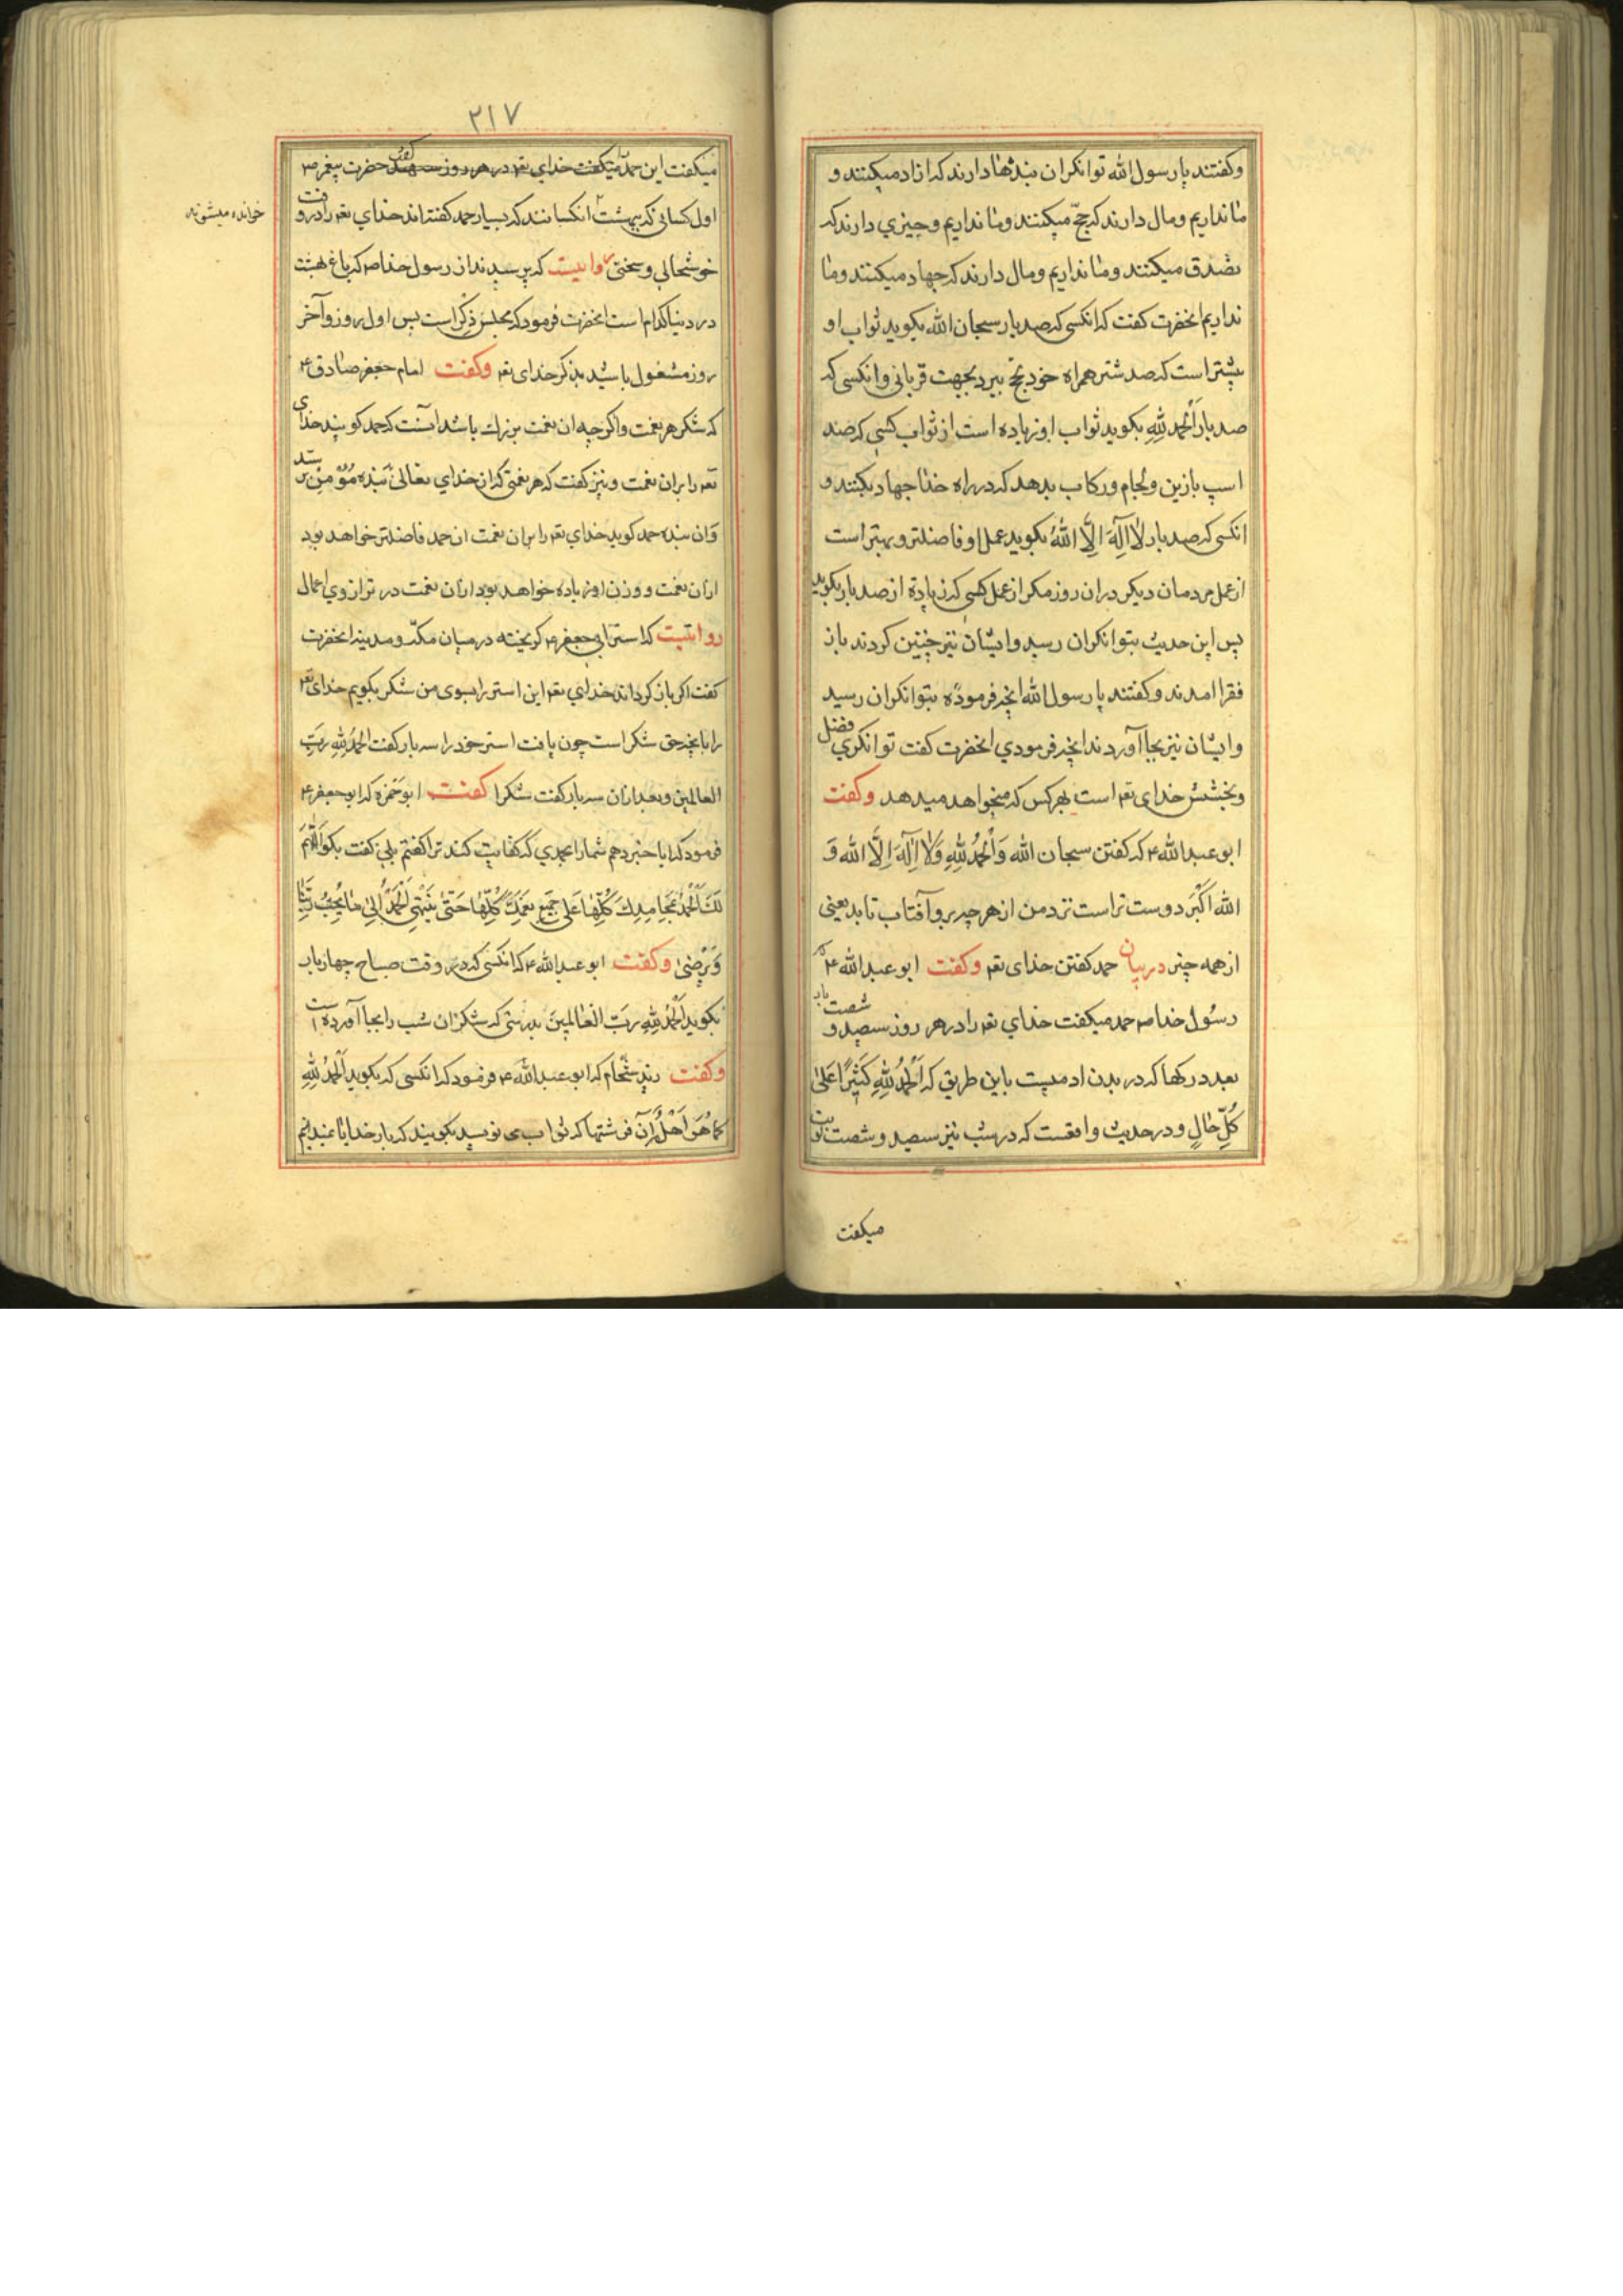 وکفتند یا رسول الله توانکران بندها دارند که ازاد میکنند و
ما نداریم ومال دارند که حجّ میکنند وما نداریم وچیزي دارند که
تصّدق میکنند وما نداریم ومال دارند که جهاد میکنند وما
نداریم انحضرت کفت که انکسی که صد بار سبحان الله بکوید ثواب او
بیشتر است که صد شتر همراه خود بحج ببرد بجهت قربانی وانکسی که
صد بار اَلْحَمْدُ لِلّٰهِ بکوید ثواب او زیاده است از ثواب کسی که صد
اسپ بازین ولجام ورکاب بدهد که در راه خدا جهاد بکنند و
انکسی که صد بار لٰا اِلٰهَ اِلَّا اللّٰهُ بکوید عمل او فاضلتر وبهتر است
از عمل مردمان دیکر دران روز مکر از عمل کسی که زیاده از صد بار بکوید
پس این حدیث بتوانکران رسید وایشان نیز چنین کردند باز
فقرا امدند وکفتند یا رسول الله انچه فرمودهٔ بتوانکران رسید
وایشان نیز بجا آوردند انچه فرمودي انحضرت کفت توانکري فضل
وبخشش خدای تعه است بهر کس که میخواهد میدهد وکفت
ابو عبد الله ع که کفتن سبحان الله وَاَلْحَمْدُ لِلّٰهِ وَلٰا اِلٰهَ اِلَّا الله وَ
الله اَکْبَر دوست تر است نزد من از هرچه برو آفتاب تابد یعنی
از همه چیز در بیان حمد کفتن خدای تعه وکفت ابو عبد الله ع که
رسُول خدا صه حمد میکفت خداي تعه را در هر روز سیصد و شصت بار
بعدد رکها که در بدن ادمیست باین طریق که اَلْحَمْدُ لِلّٰهِ کَثیِرًا عَلیٰ
کُلِّ حٰالٍ ودر حدیث واقعست که در شب نیز سیصد وشصت نوبت
میکفت
۲۱۷
میکفت این حمد را میکفت خداي تعه در هر روز کفت حضرت پیغمبر صه
اول کسانی که ببهشت انکسانند که بسیار حمد کفته اند خداي تعه را در وقت
خوانده میشوند
خوشحالي وسختی روایتست که پرسیدند از رسول خدا صه که باغ بهشت
در دنیا کدام است انحضرت فرمود که مجلس ذِکْر است پس اول روز وآخر
روز مشغول باشید بذکر خدای تعه وکفت امام جعفر صادق ع
که شکر هر نعمت واکرچه ان نعمت بزرك باشد انست که حمد کویند خدای
تعه را بران نعمت ونیز کفت که هر نعمتی که از خداي تعالیٰ بَنْدهٔ مُؤْمِنْ رسد
وَان بنده حمد کوید خداي تعه را بران نعمت ان حمد فاضلتر خواهد بود
ازان نعمت ووزن او زیاده خواهد بود ازان نعمت در ترازوي اعمال
روایتست که استر ابي جعفر ع کریخته در میان مکّه ومدینه انحضرت
کفت اکر باز کرداند خداي تعه این استر را بسوی من شکر بکویم خداي تعه
را بانچه حق شکر است چون یافت استر خود را سه بار کفت الحَمْدُ لِلّٰهِ رَبِّ
العالمین وبعد ازان سه بار کفت شکرا کفت ابو حَمْزه که ابو جعفر ع
فرمود که ایا خبر دهم شما را بحمدي که کفایت کند ترا کفتم بلی کفت بکو اَللّٰهُمَّ
لَكَ اَلْحَمْدُ بِمَحٰامِدِكَ کُلِّهٰا عَلیٰ جَمیِعِ نِعَمِكَ کُلِّهٰا حَتّیٰ یَنْتَهِيَ اَلْحَمْدُ اِلیٰ مٰا یُحِبُّ رَبُّنٰا
وَیَرْضیٰ وکفت ابو عبد الله ع که انکسی که در وقت صباح چهار بار
بکوید اَلْحَمْدُ لِلّٰهِ رَبِّ الْعٰالَمیِنَ بدرستی که شکر ان شب را بجا آورده است
وکفت زید شحّام که ابو عبد الله ع فرمود که انکسی که بکوید اَلْحَمْدُ لِلّٰهِ
کَمٰا هُوَ اَهْلُهُ فرشتها که ثواب می نویسند بکویند که بار خدایا نمیدانیم